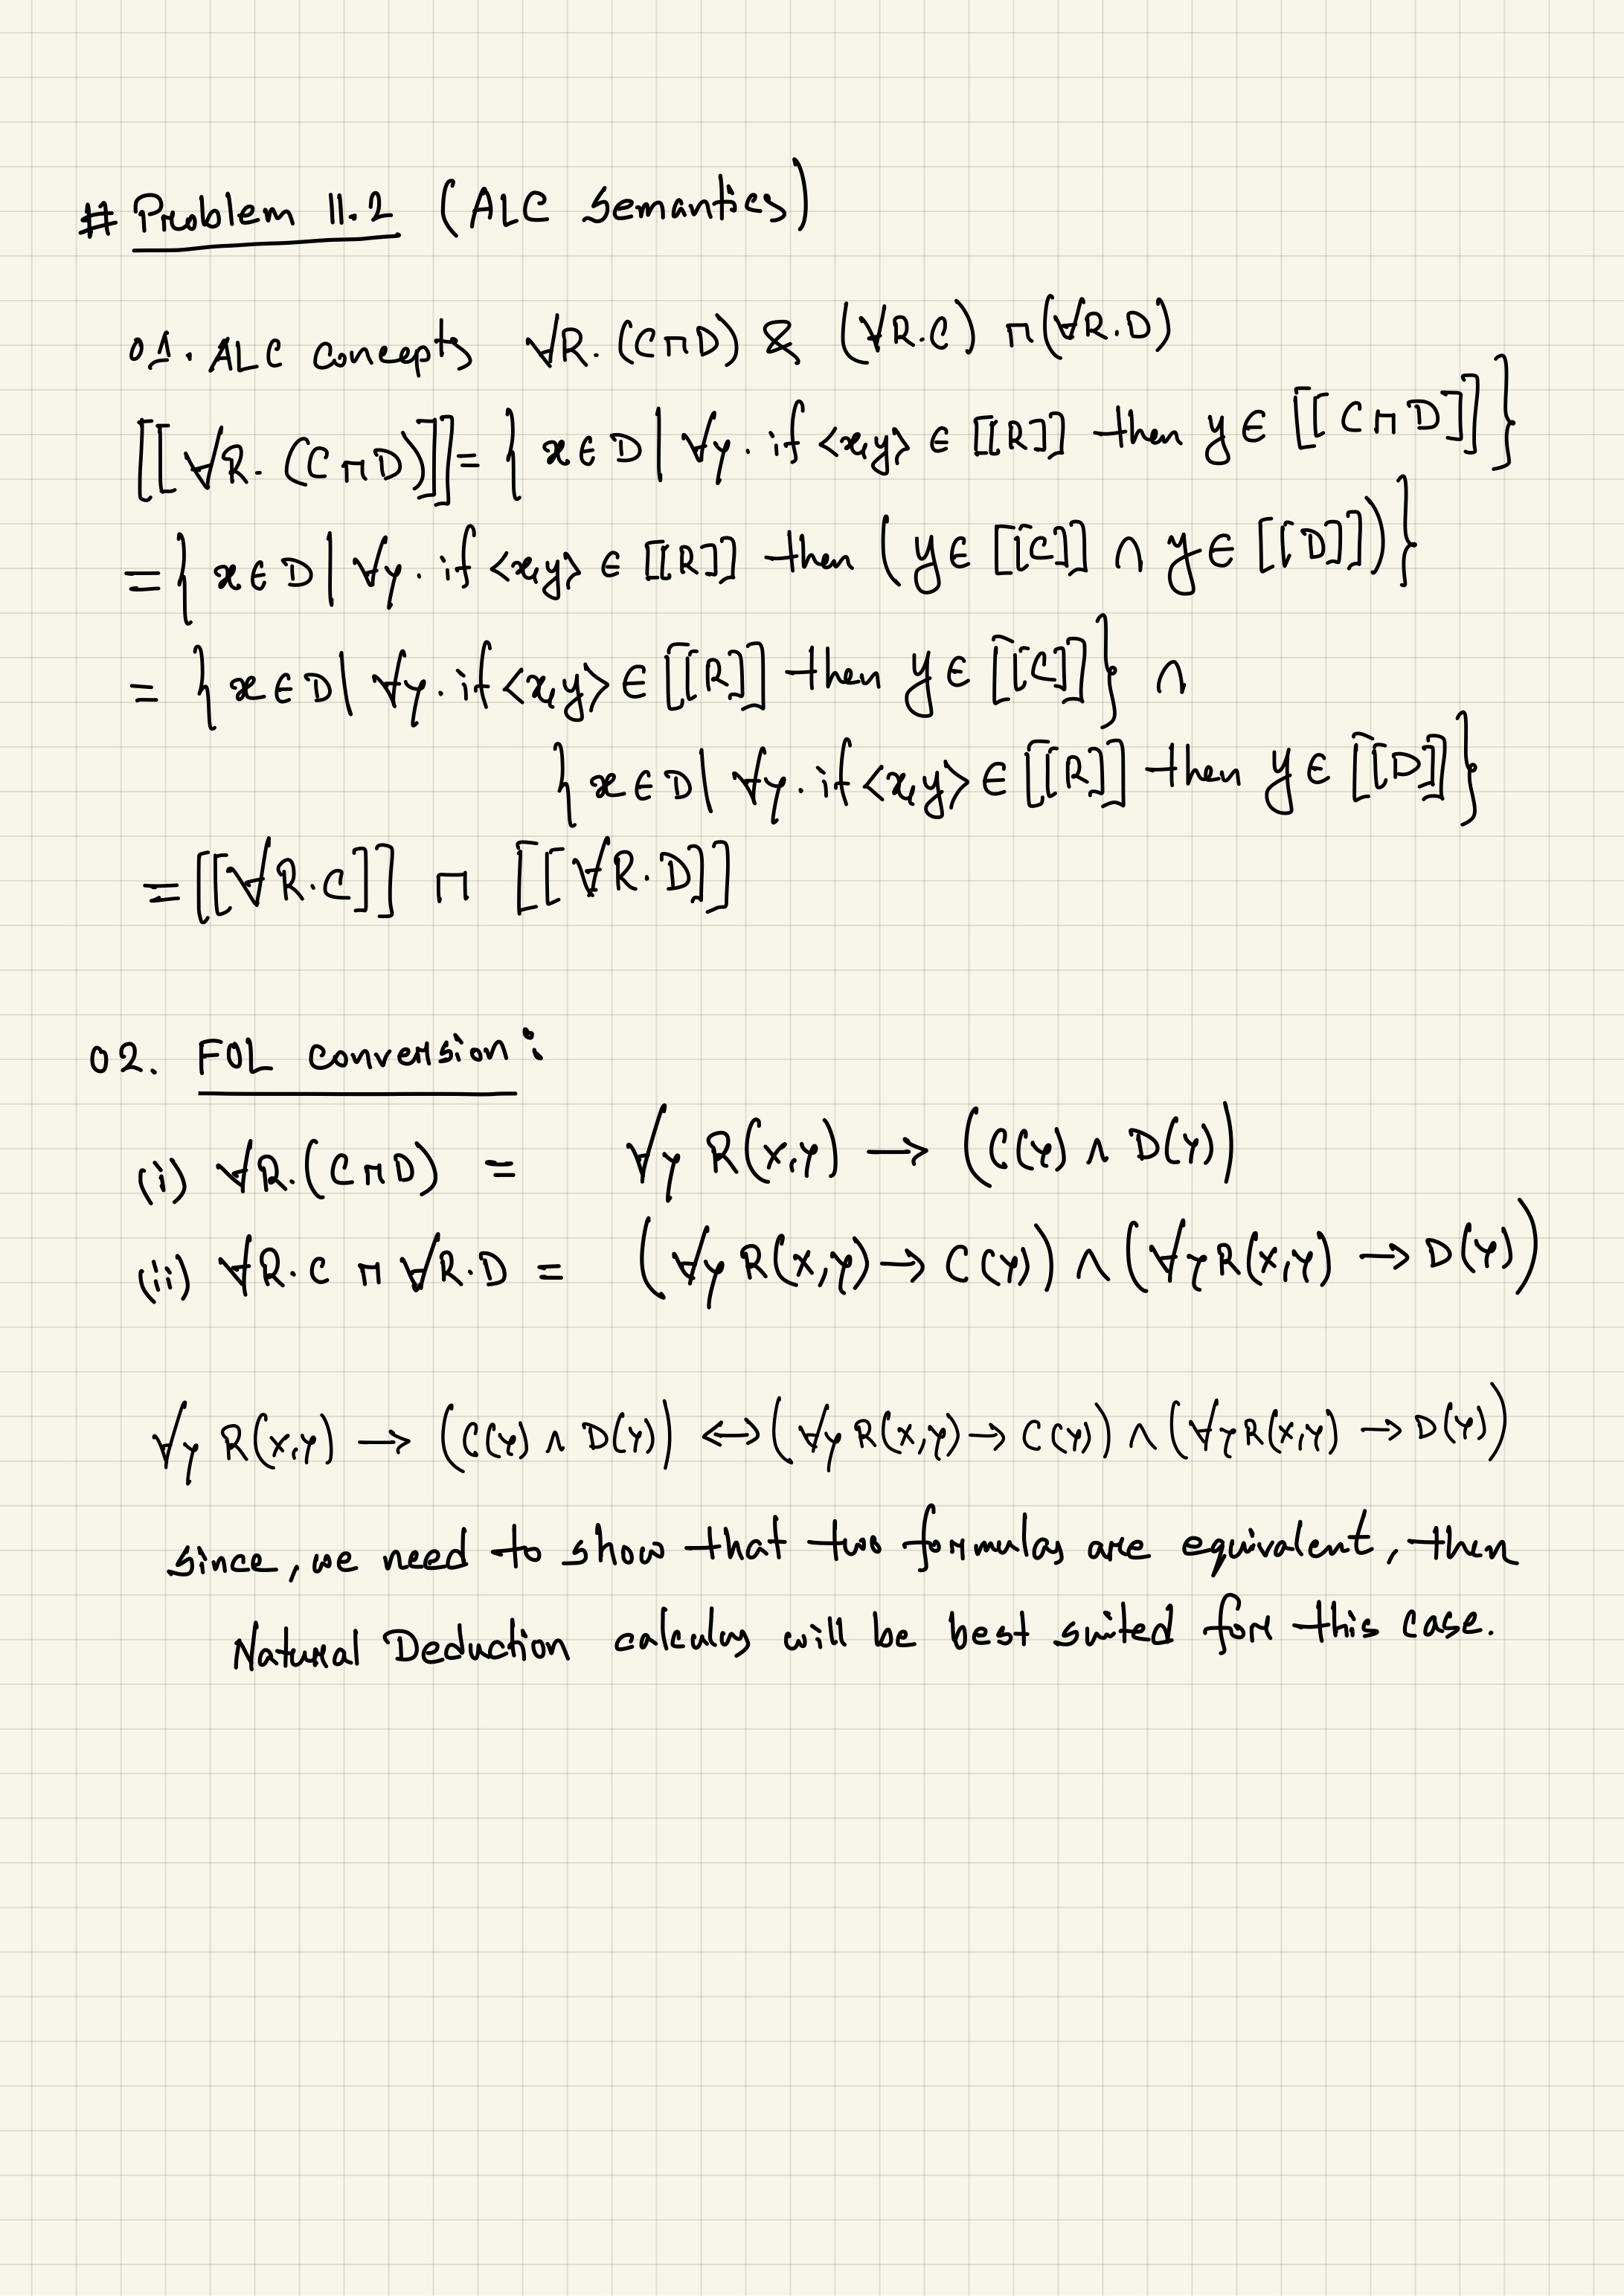 # Problem 11.2 (ALC Semantics)
01. ALC concepts ∀R.(C⊓D) & (∀R.C) ⊓ (∀R.D)
[[∀R.(C⊓D)]] = {x∈D | ∀y. if <x,y> ∈ [[R]] then y ∈ [[C⊓D]]}
= {x∈D | ∀y. if <x,y> ∈ [[R]] then (y∈ [[C]] ∩ y∈ [[D]])}
= {x∈D | ∀y. if <x,y> ∈ [[R]] then y∈ [[C]]} ∩
{x∈D | ∀y. if <x,y> ∈ [[R]] then y∈ [[D]]}
= [[∀R.C]] ⊓ [[∀R.D]]
02. FOL conversion:
(i) ∀R.(C⊓D) = ∀y R(x,y) → (C(y) ∧ D(y))
(ii) ∀R.C ⊓ ∀R.D = (∀y R(x,y) → C(y)) ∧ (∀y R(x,y) → D(y))
∀y R(x,y) → (C(y) ∧ D(y)) ↔ (∀y R(x,y) → C(y)) ∧ (∀y R(x,y) → D(y))
since, we need to show that two formulas are equivalent, then
Natural Deduction calculus will be best suited for this case.